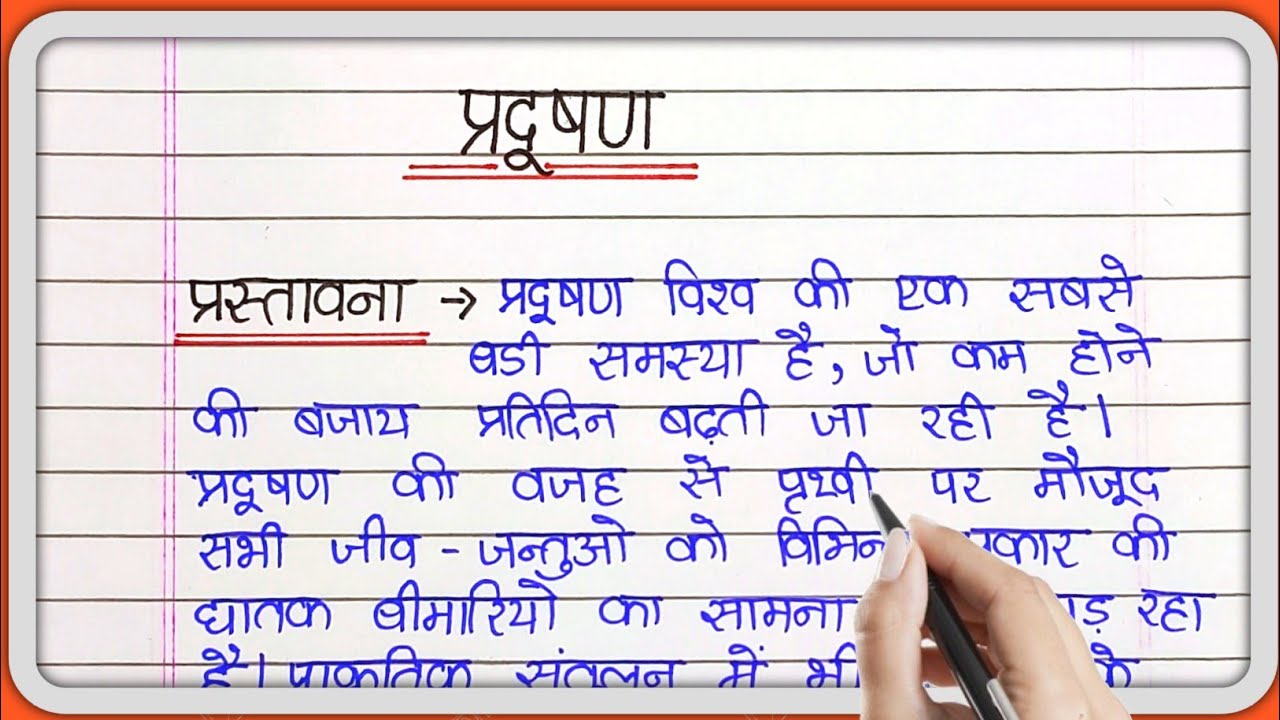 प्रदूषण
प्रस्तावना → प्रदूषण विश्व की एक सबसे
बडी समस्या है, जो कम होने
की बजाय प्रतिदिन बढ़ती जा रही है।
प्रदूषण की वजह से पृथ्वी पर मौजूद
सभी जीव - जन्तुओ को की
घातक बीमारियो का सामना रहा
है। प्राकृतिक संतुलन में भी